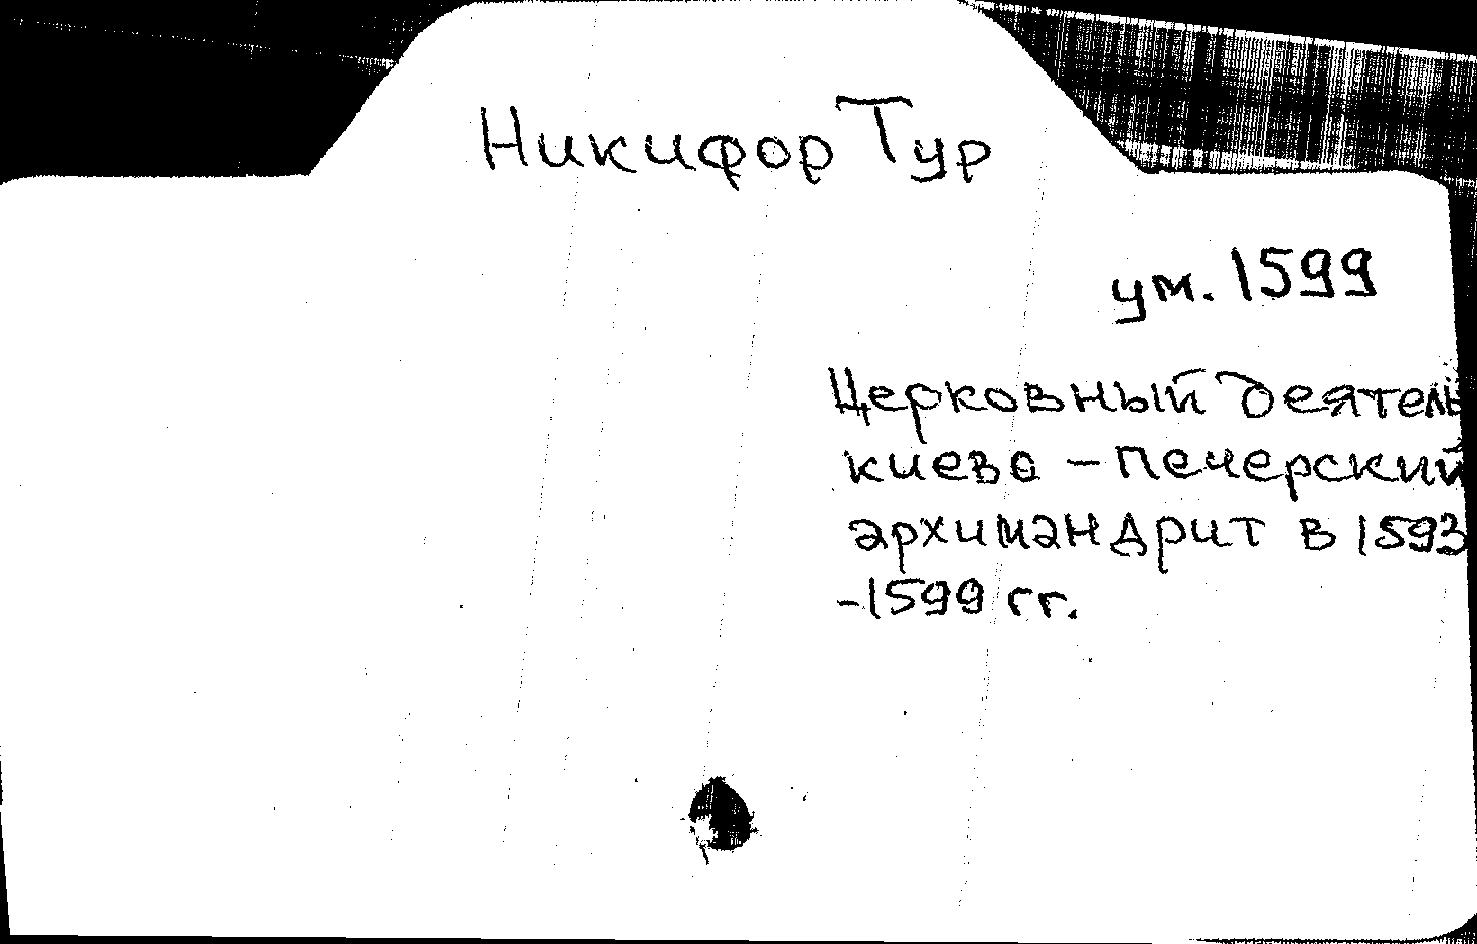 Никифор Тур
ум. 1599
Церковный деятель
киево - печерский
архимандрит в 1593
-1599 гг.